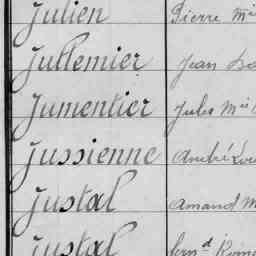 Julien Pierre M
Jullemier Jean
Jumentier Jules M
Jussienne André Lou
Justal Amand M
Justal fern^d Rom